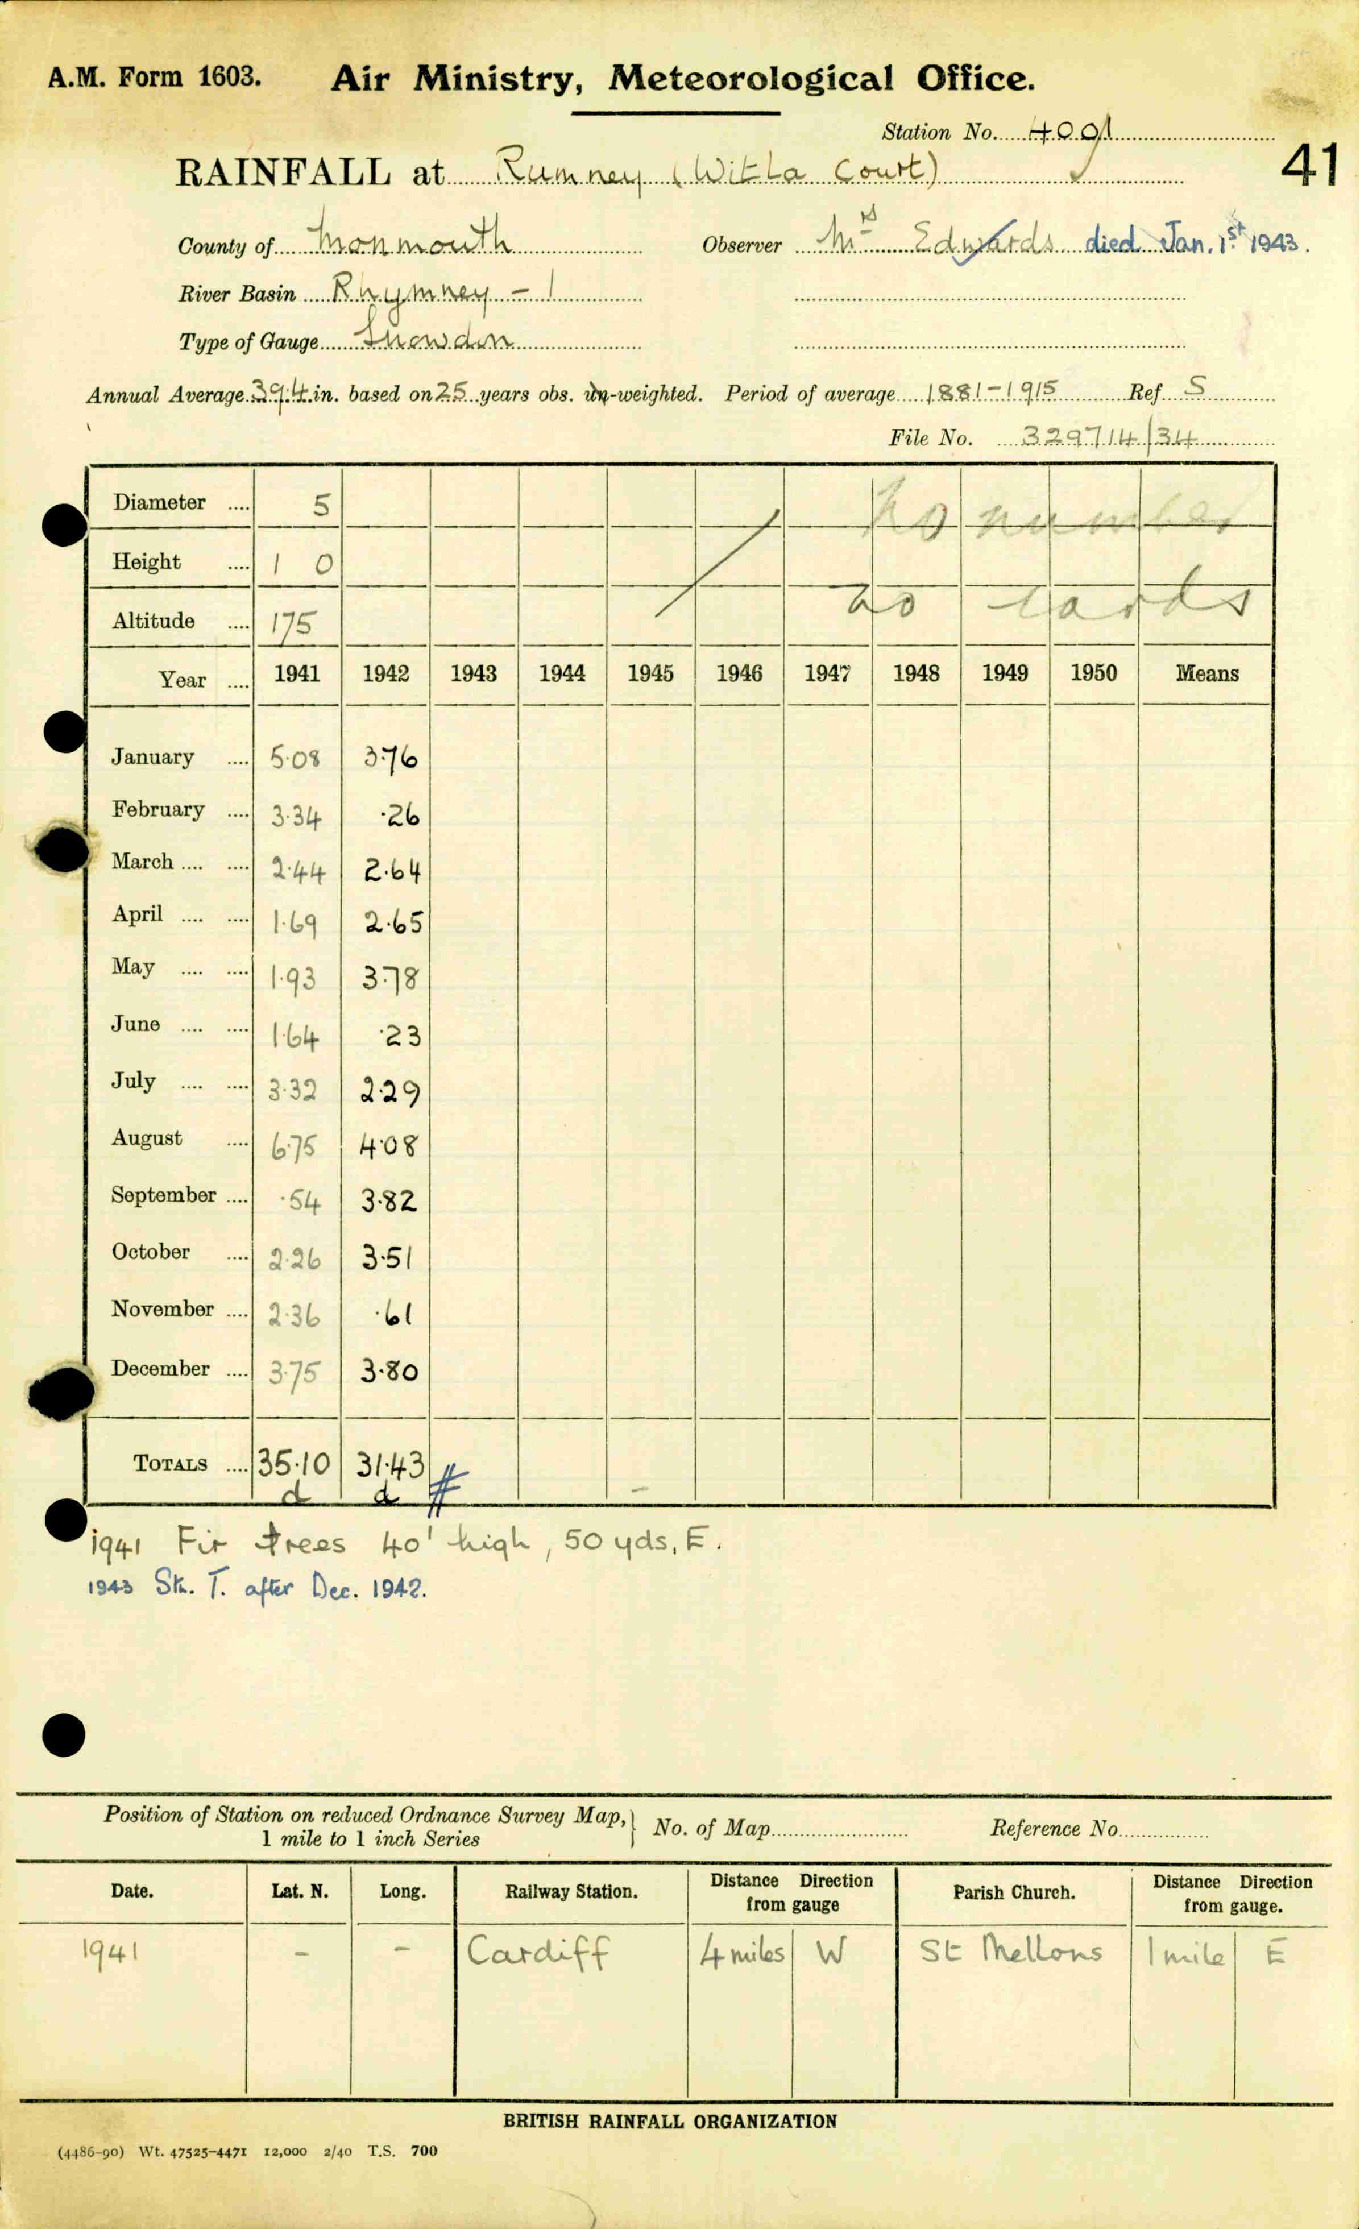 A.M. Form 1603. Air Ministry, Meteorological Office.
Station No. 4091
41
RAINFALL at Rumney (Witla Court)
County of Monmouth Observer Mrs Edwards died Jan. 1st 1943.
River Basin Rhymney - 1
Type of Gauge Snowdon
Annual Average 39.4 in. based on 25 years obs. un-weighted. Period of average 1881-1915 Ref S
File No. 329714/34
Diameter .... 5 no number
Height .... 1 0
Altitude .... 175 no cards
Year .... 1941 1942 1943 1944 1945 1946 1947 1948 1949 1950 Means
January .... 5.08 3.76
February .... 3.34 .26
March .... .... 2.44 2.64
April .... .... 1.69 2.65
May .... .... 1.93 3.78
June .... .... 1.64 .23
July .... .... 3.32 2.29
August .... 6.75 4.08
September .... .54 3.82
October .... 2.26 3.51
November .... 2.36 .61
December .... 3.75 3.80
TOTALS .... 35.10 31.43 #
d d -
1941 Fir trees 40' high, 50 yds, E.
1943 Stn. T. after Dec. 1942.
Position of Station on reduced Ordnance Survey Map, } No. of Map Reference No
1 mile to 1 inch Series
Date. Lat. N. Long. Railway Station. Distance Direction from gauge Parish Church. Distance Direction from gauge.
1941 - - Cardiff 4 miles W St Mellons 1 mile E
BRITISH RAINFALL ORGANIZATION
(4486-90) Wt. 47525-4471 12,000 2/40 T.S. 700